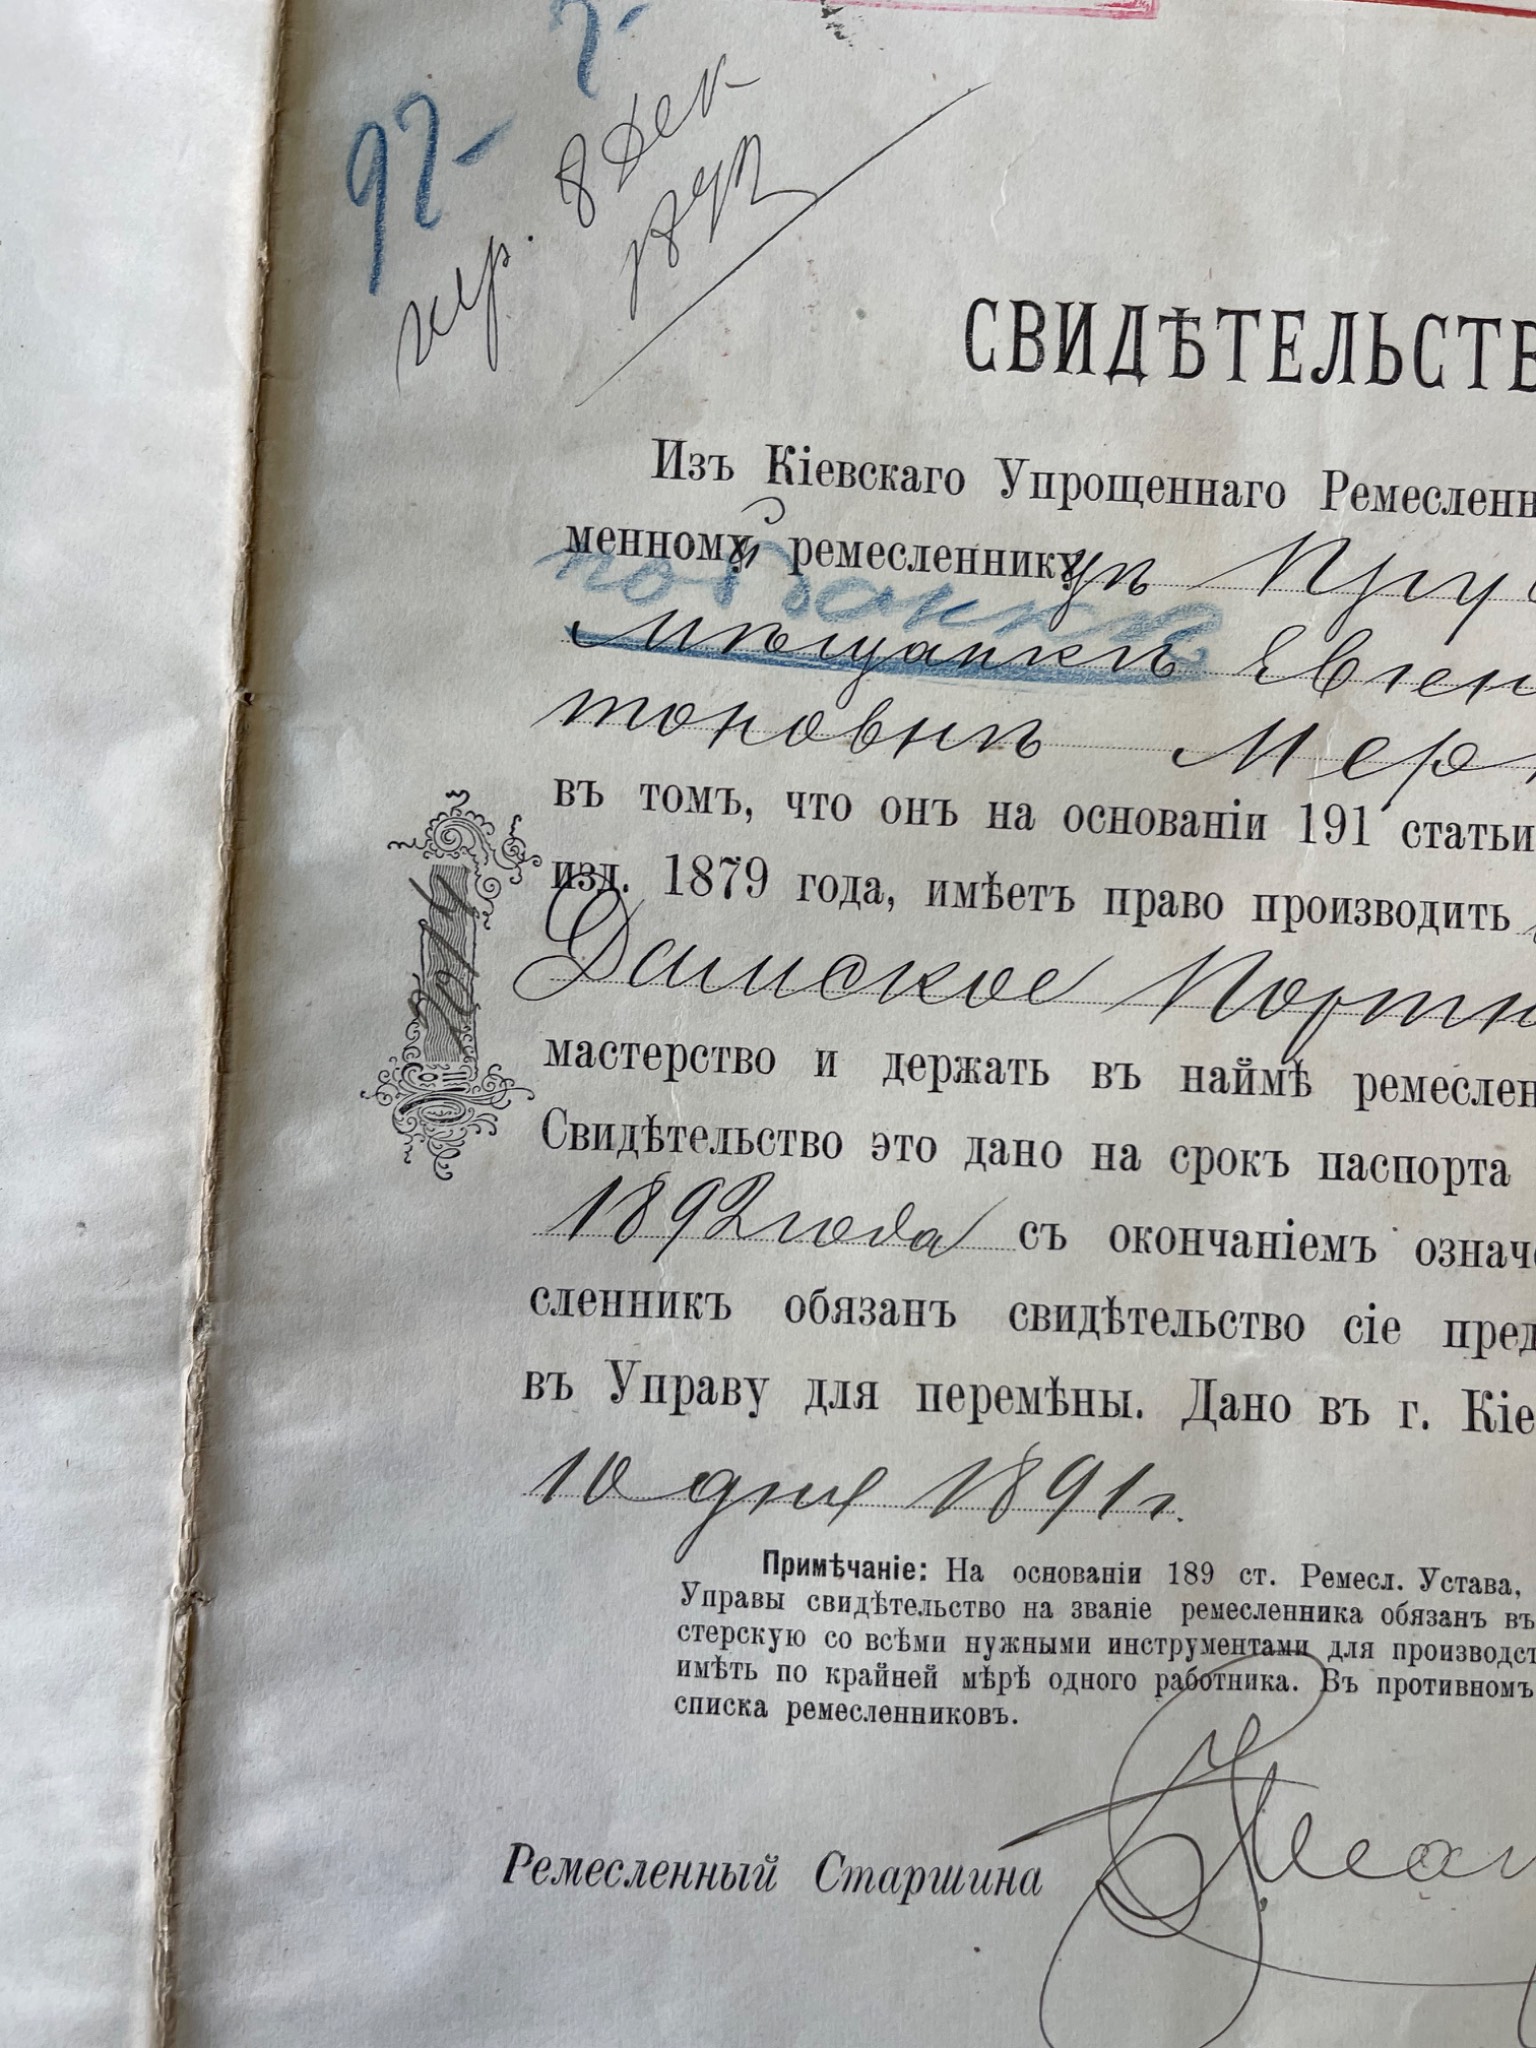 97-
8 Дек
1892
СВИДѢТЕЛЬСТВ
Изъ Кіевскаго Упрощеннаго Ремесленн
менной ремесленницѣ Пру
подданкѣ
Мѣщанкѣ Евген
тоновнѣ Мер
въ томъ, что онъ на основаніи 191 статьи
изд. 1879 года, имѣетъ право производить
Дамское Портн
мастерство и держать въ наймѣ ремеслен
Свидѣтельство это дано на срокъ паспорта
1892 года съ окончаніемъ означе
сленникъ обязанъ свидѣтельство сіе пред
въ Управу для перемѣны. Дано въ г. Кіе
10 дня 1891 г.
Примѣчаніе: На основаніи 189 ст. Ремесл. Устава,
Управы свидѣтельство на званіе ремесленника обязанъ въ
стерскую со всѣми нужными инструментами для производст
имѣть по крайней мѣрѣ одного работника. Въ противномъ
списка ремесленниковъ.
Ремесленный Старшина